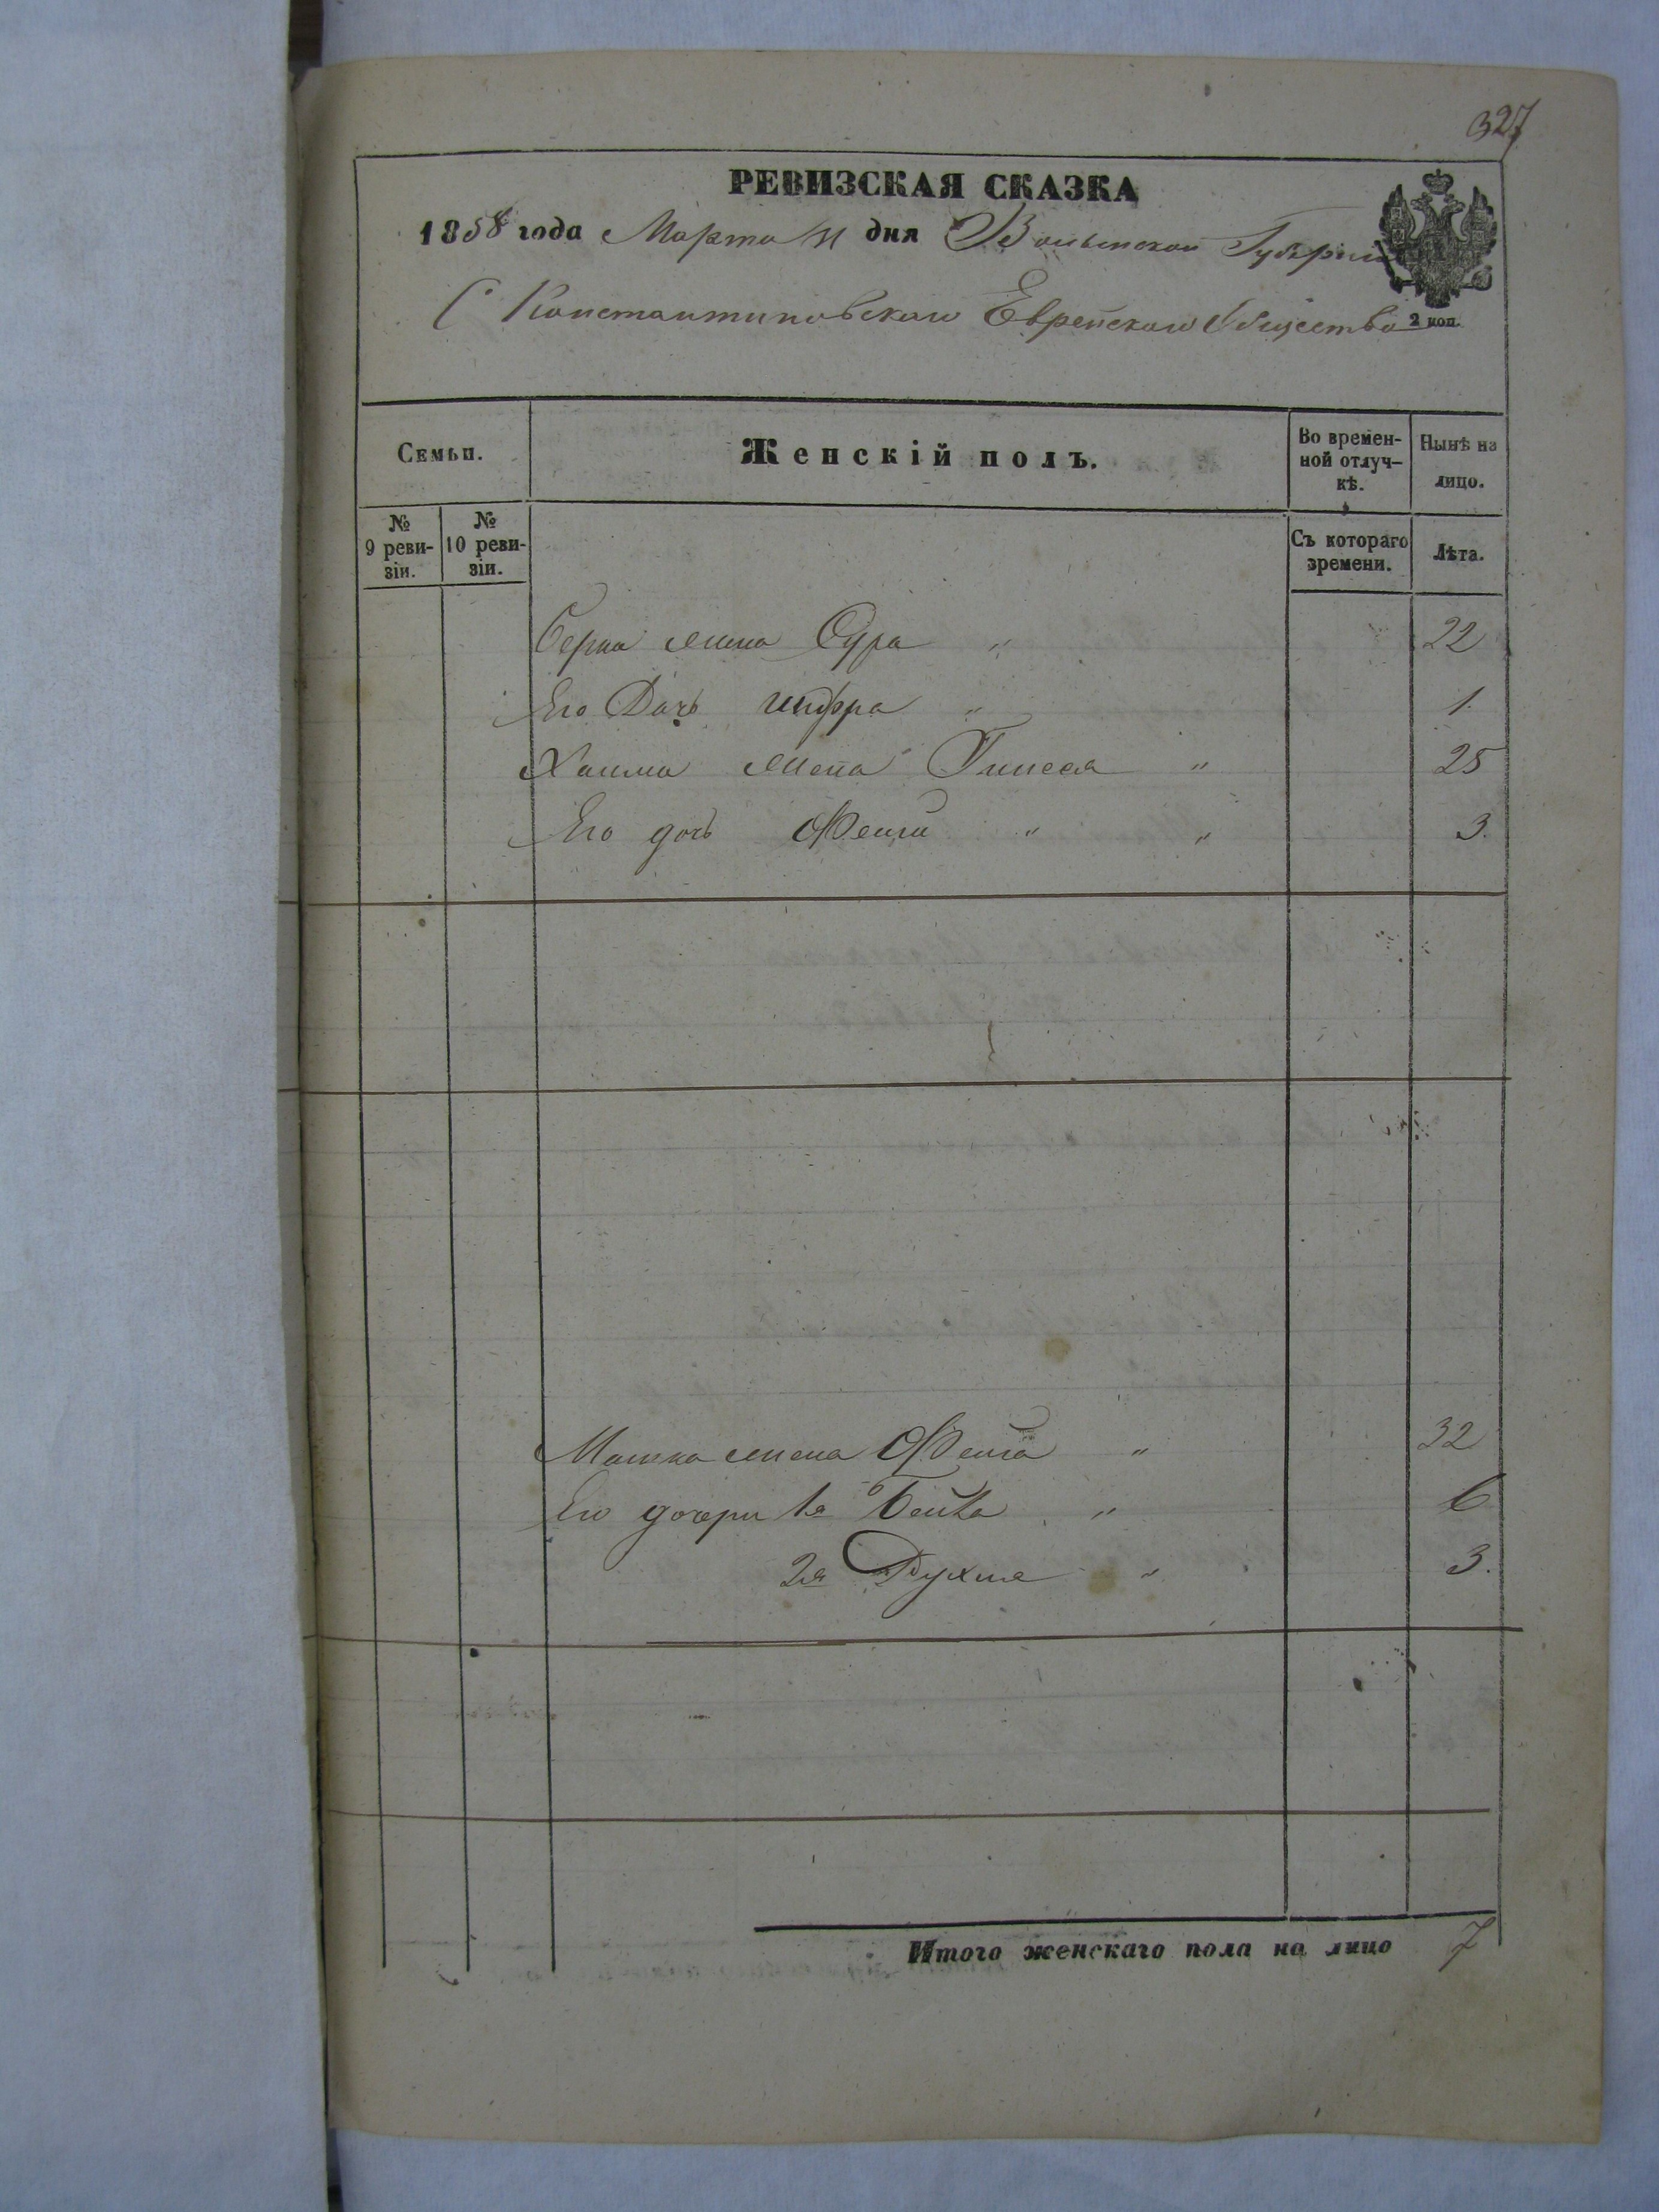 327
РЕВИЗСКАЯ СКАЗКА
1858 года Марта 31 дня Волынской Губерніи
С Константиновскаго Еврейскаго Общества 2 коп.
Семьи.
Женскій полъ.
Во времен-
ной отлуч-
кѣ.
Нынѣ на
лицо.
№
9 реви-
зіи.
№
10 реви-
зіи.
Съ котораго
времени.
Лѣта.
Берка жена Сура " 22
Его Дочь Шифра " 1.
Хаима жена Гинеся " 25
Его дочь Фейги " " 3.
Машка жена Фейга " 32
Его дочери 1я Бейла " 6
2я Рухля " 3.
Итого женскаго пола на лицо 7